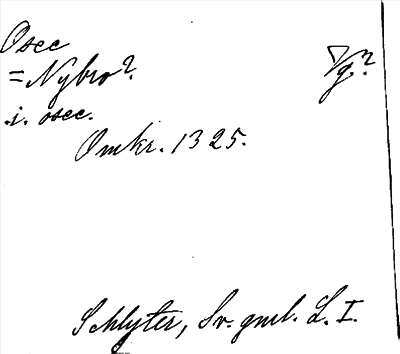 Osee
=Nybro? Vg?
.i. osee.
Omkr. 1325.
Schlyter, Sv. gml. L. I.